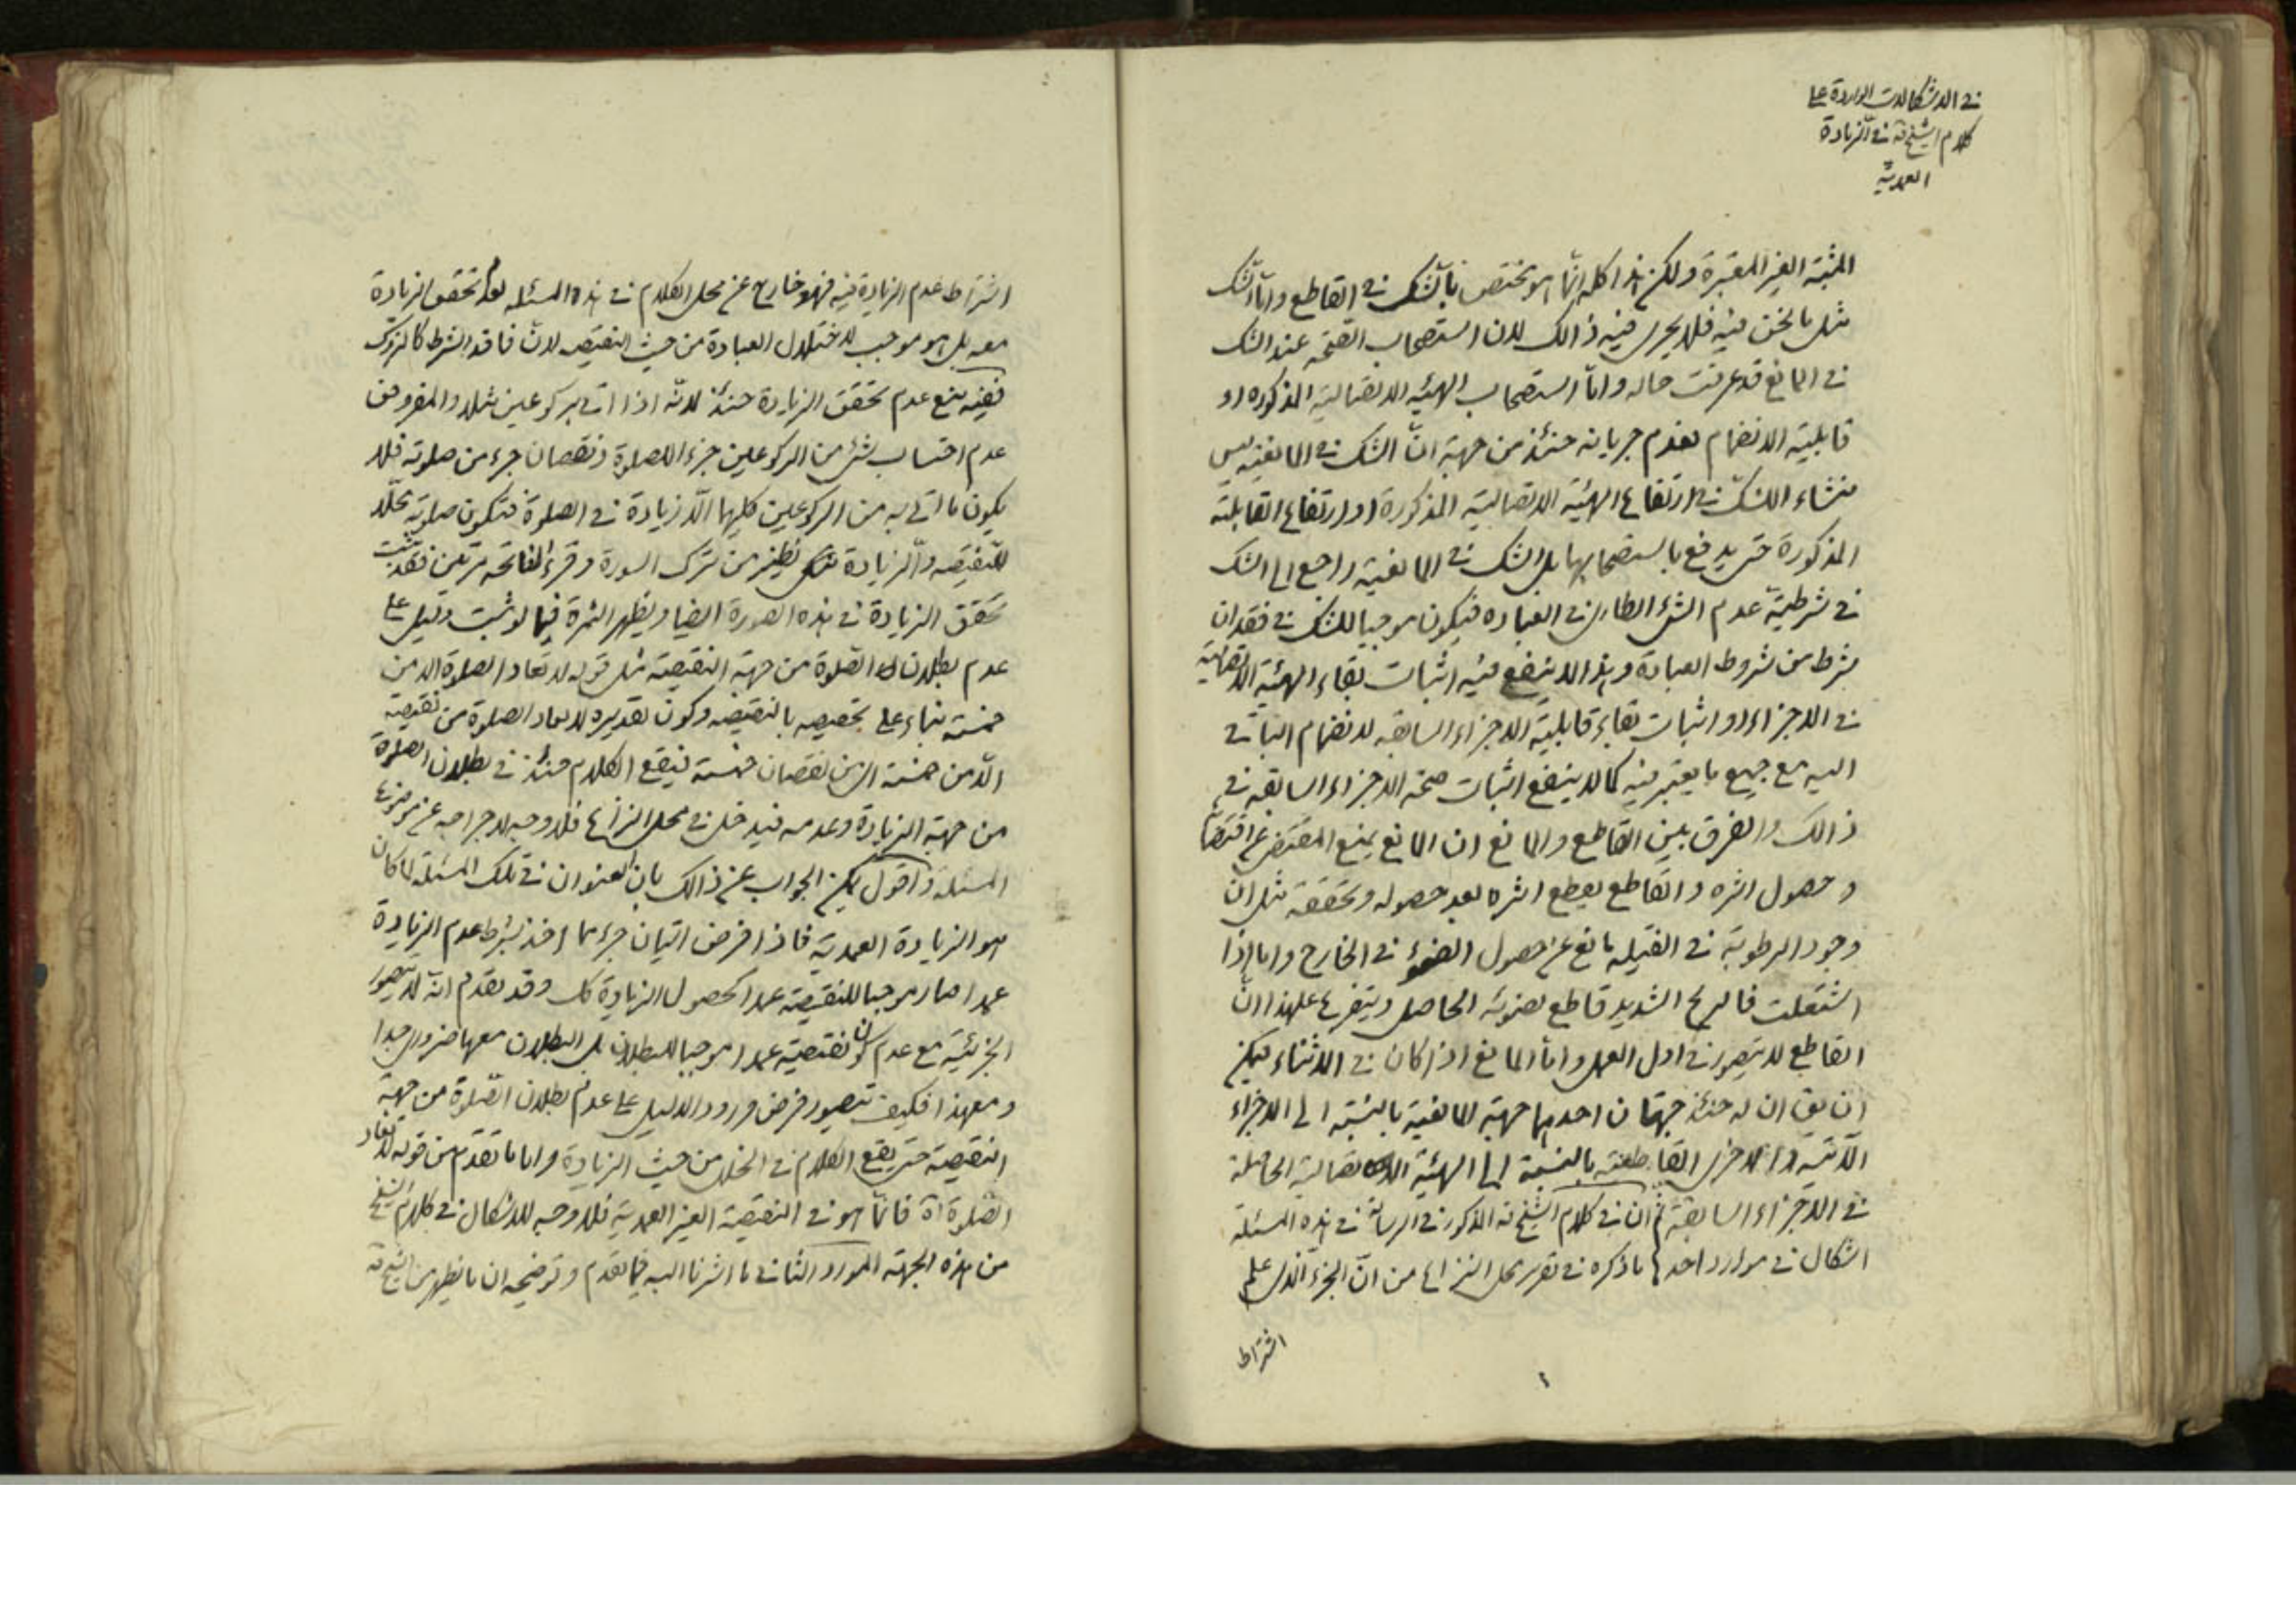 في الاشكالات الواردة على
كلام الشيخ قه في الزيادة
العمدية
المثبتة الغير المعتبرة ولكن هذا كله انّما هو يختص بالشّك في القاطع وامّا الشّك
مثل ما نحن فيه فلا يجرى فيه ذالك لان استصحاب الصّحة عند الشك
في المانع قد عرفت حاله وامّا استصحاب الهيئة الاتصالية المذكوره او
قابلية الانضمام فعدم جريانه حنئذ من جهة انّ الشك في المانعية ليس
منشاء الشكّ في ارتفاع الهيئة الاتصالية المذكورة او ارتفاع القابلية
المذكورة حتى يدفع باستصحابها بل الشك في المانعية راجع الى الشك
في شرطية عدم الشئ الطارى في العباده فيكون موجبا للشك في فقدان
شرط من شروط العبادة وهذا لا ينفع فيه اثبات بقاء الهيئة الاتصالية
في الاجزاء او اثبات بقاء قابلية الاجزاء السابقه لانضمام الباقى
اليه مع جميع ما يعتبر فيه كما لا ينفع اثبات صحة الاجزاء السابقه في
ذالك والفرق بين القاطع والمانع ان المانع يمنع المقتضى عن اقتضائه
و حصول اثره والقاطع يقطع اثره بعد حصوله وتحققه مثل انّ
وجود الرطوبة في الفتيله مانع عن حصول الضوء في الخارج واما اذا
اشتعلت فالريح الشديد قاطع لضوئه الحاصل ويتفرع على هذا انّ
القاطع لا يتصور في اول العمل وامّا المانع اذا كان في الاثناء فيمكن
ان يق ان له حنئذ جهتان احديهما جهة المانعية بالنسبة الى الاجزاء
الآتية والاخرى القاطعية بالنسبة الى الهيئة الاتصالية الحاصلة
في الاجزاء السابقة ثم ان في كلام الشيخ قه المذكور في الرسالة في هذه المسئلة
اشكال في موارد احدها ما ذكره في تقرير محل النزاع من انّ الجزء الّذى علم
اشتراط
اشتراط عدم الزيادة فيه فهو خارج عن محل الكلام في هذه المسئله لعدم تحقق الزيادة
معه بل هو موجب لاختلال العبادة من حيث النقيصه لانّ فاقد الشرط كالمتروك
ففيه منع عدم تحقق الزيادة حنئذ لانّه اذا اتى بركوعين مثلا والمفروض
عدم احتساب شئ من الركوعين جزء للصلوة ونقصان جزء من صلوته فلا
يكون ما اتى به من الركوعين كليهما الّا زيادة في الصلوة فتكون صلوته محلّا
للنقيصه والزيادة نظير من ترك السورة وقرء الفاتحه مرتين فقد ثبت
تحقق الزيادة في هذه الصورة ايضا ويظهر الثمرة فيما لو ثبت دليل على
عدم بطلان الصّلوة من جهة النقيصة مثل قوله لا تعاد الصلوة الا من
خمسة بناء على تخصيصه بالنقيصه وكون تقديره لا تعاد الصلوة من نقيصة
الّا من خمسة اى من نقصان خمسة فيقع الكلام حنئذ في بطلان الصلوة
من جهة الزيادة وعدمه فيدخل في محل النزاع فلا وجه لاخراجه عن موضوع
المسئلة واقول يمكن الجواب عن ذالك بان العنوان في تلك المسئلة لما كان
هو الزيادة العمدية فاذا فرض اتيان جزء مما اخذ بشرط عدم الزيادة
عمدا صار موجبا للنقيصة عمدا كحصول الزيادة كك وقد تقدم انّه لا يتصور
الجزئية مع عدم كون نقيصته عمدا موجبا للبطلان بل البطلان معها ضرورى جدا
ومعهذا فكيف يتصور فرض ورود الدليل على عدم بطلان الصّلوة من جهة
النقيصة حتى يقع الكلام في الخلل من حيث الزيادة واما ما تقدم من قوله لا تعاد
الصّلوة اه فانّما هو في النقيصة الغير العمدية فلا وجه للاشكال في كلام الشيخ
من هذه الجهة المورد الثانى ما اشرنا اليه فيما تقدم وتوضيحه ان ما يظهر من الشيخ قه